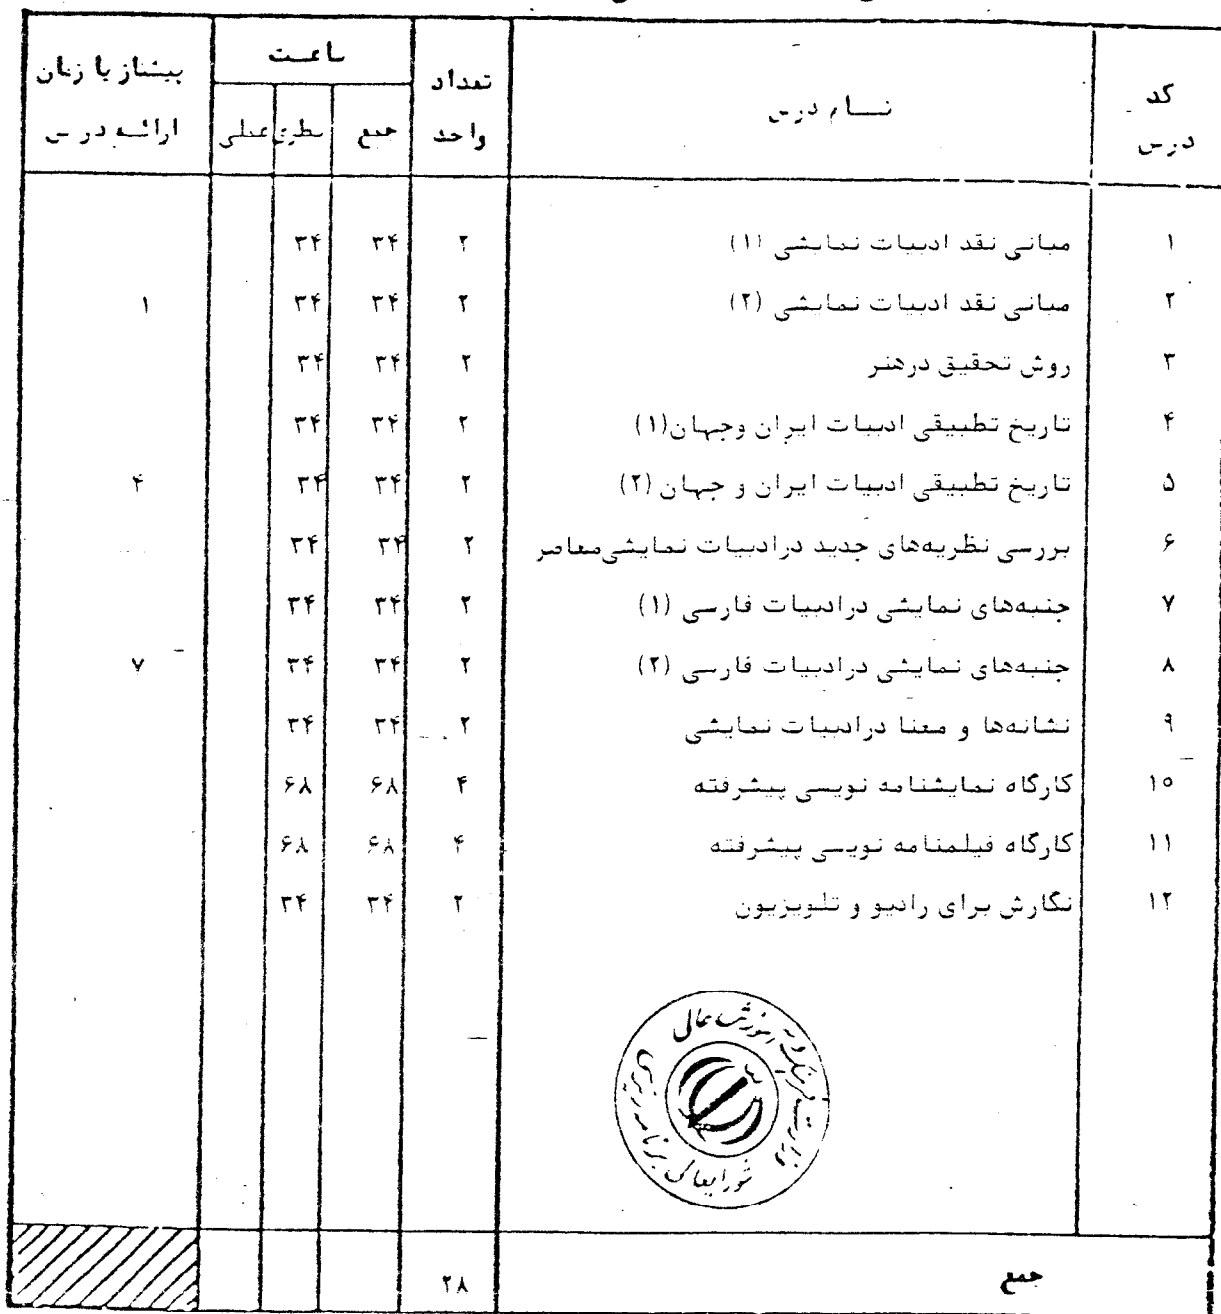 کد درس | نام درس | تعداد واحد | ساعت | پیشناز یا زمان ارائه درس
جمع | نظری | عملی
۱ | مبانی نقد ادبیات نمایشی (۱) | ۲ | ۳۴ | ۳۴
۲ | مبانی نقد ادبیات نمایشی (۲) | ۲ | ۳۴ | ۳۴ | ۱
۳ | روش تحقیق درهنر | ۲ | ۳۴ | ۳۴
۴ | تاریخ تطبیقی ادبیات ایران وجهان(۱) | ۲ | ۳۴ | ۳۴
۵ | تاریخ تطبیقی ادبیات ایران و جهان (۲) | ۲ | ۳۴ | ۳۴ | ۴
۶ | بررسی نظریه‌های جدید درادبیات نمایشی‌معاصر | ۲ | ۳۴ | ۳۴
۷ | جنبه‌های نمایشی درادبیات فارسی (۱) | ۲ | ۳۴ | ۳۴
۸ | جنبه‌های نمایشی درادبیات فارسی (۲) | ۲ | ۳۴ | ۳۴ | ۷
۹ | نشانه‌ها و معنا درادبیات نمایشی | ۲ | ۳۴ | ۳۴
۱۰ | کارگاه نمایشنامه نویسی پیشرفته | ۴ | ۶۸ | ۶۸
۱۱ | کارگاه فیلمنامه نویسی پیشرفته | ۴ | ۶۸ | ۶۸
۱۲ | نگارش برای رادیو و تلویزیون | ۲ | ۳۴ | ۳۴
وزارت فرهنگ و آموزش عالی
شورایعالی برنامه‌ریزی
جمع | ۲۸